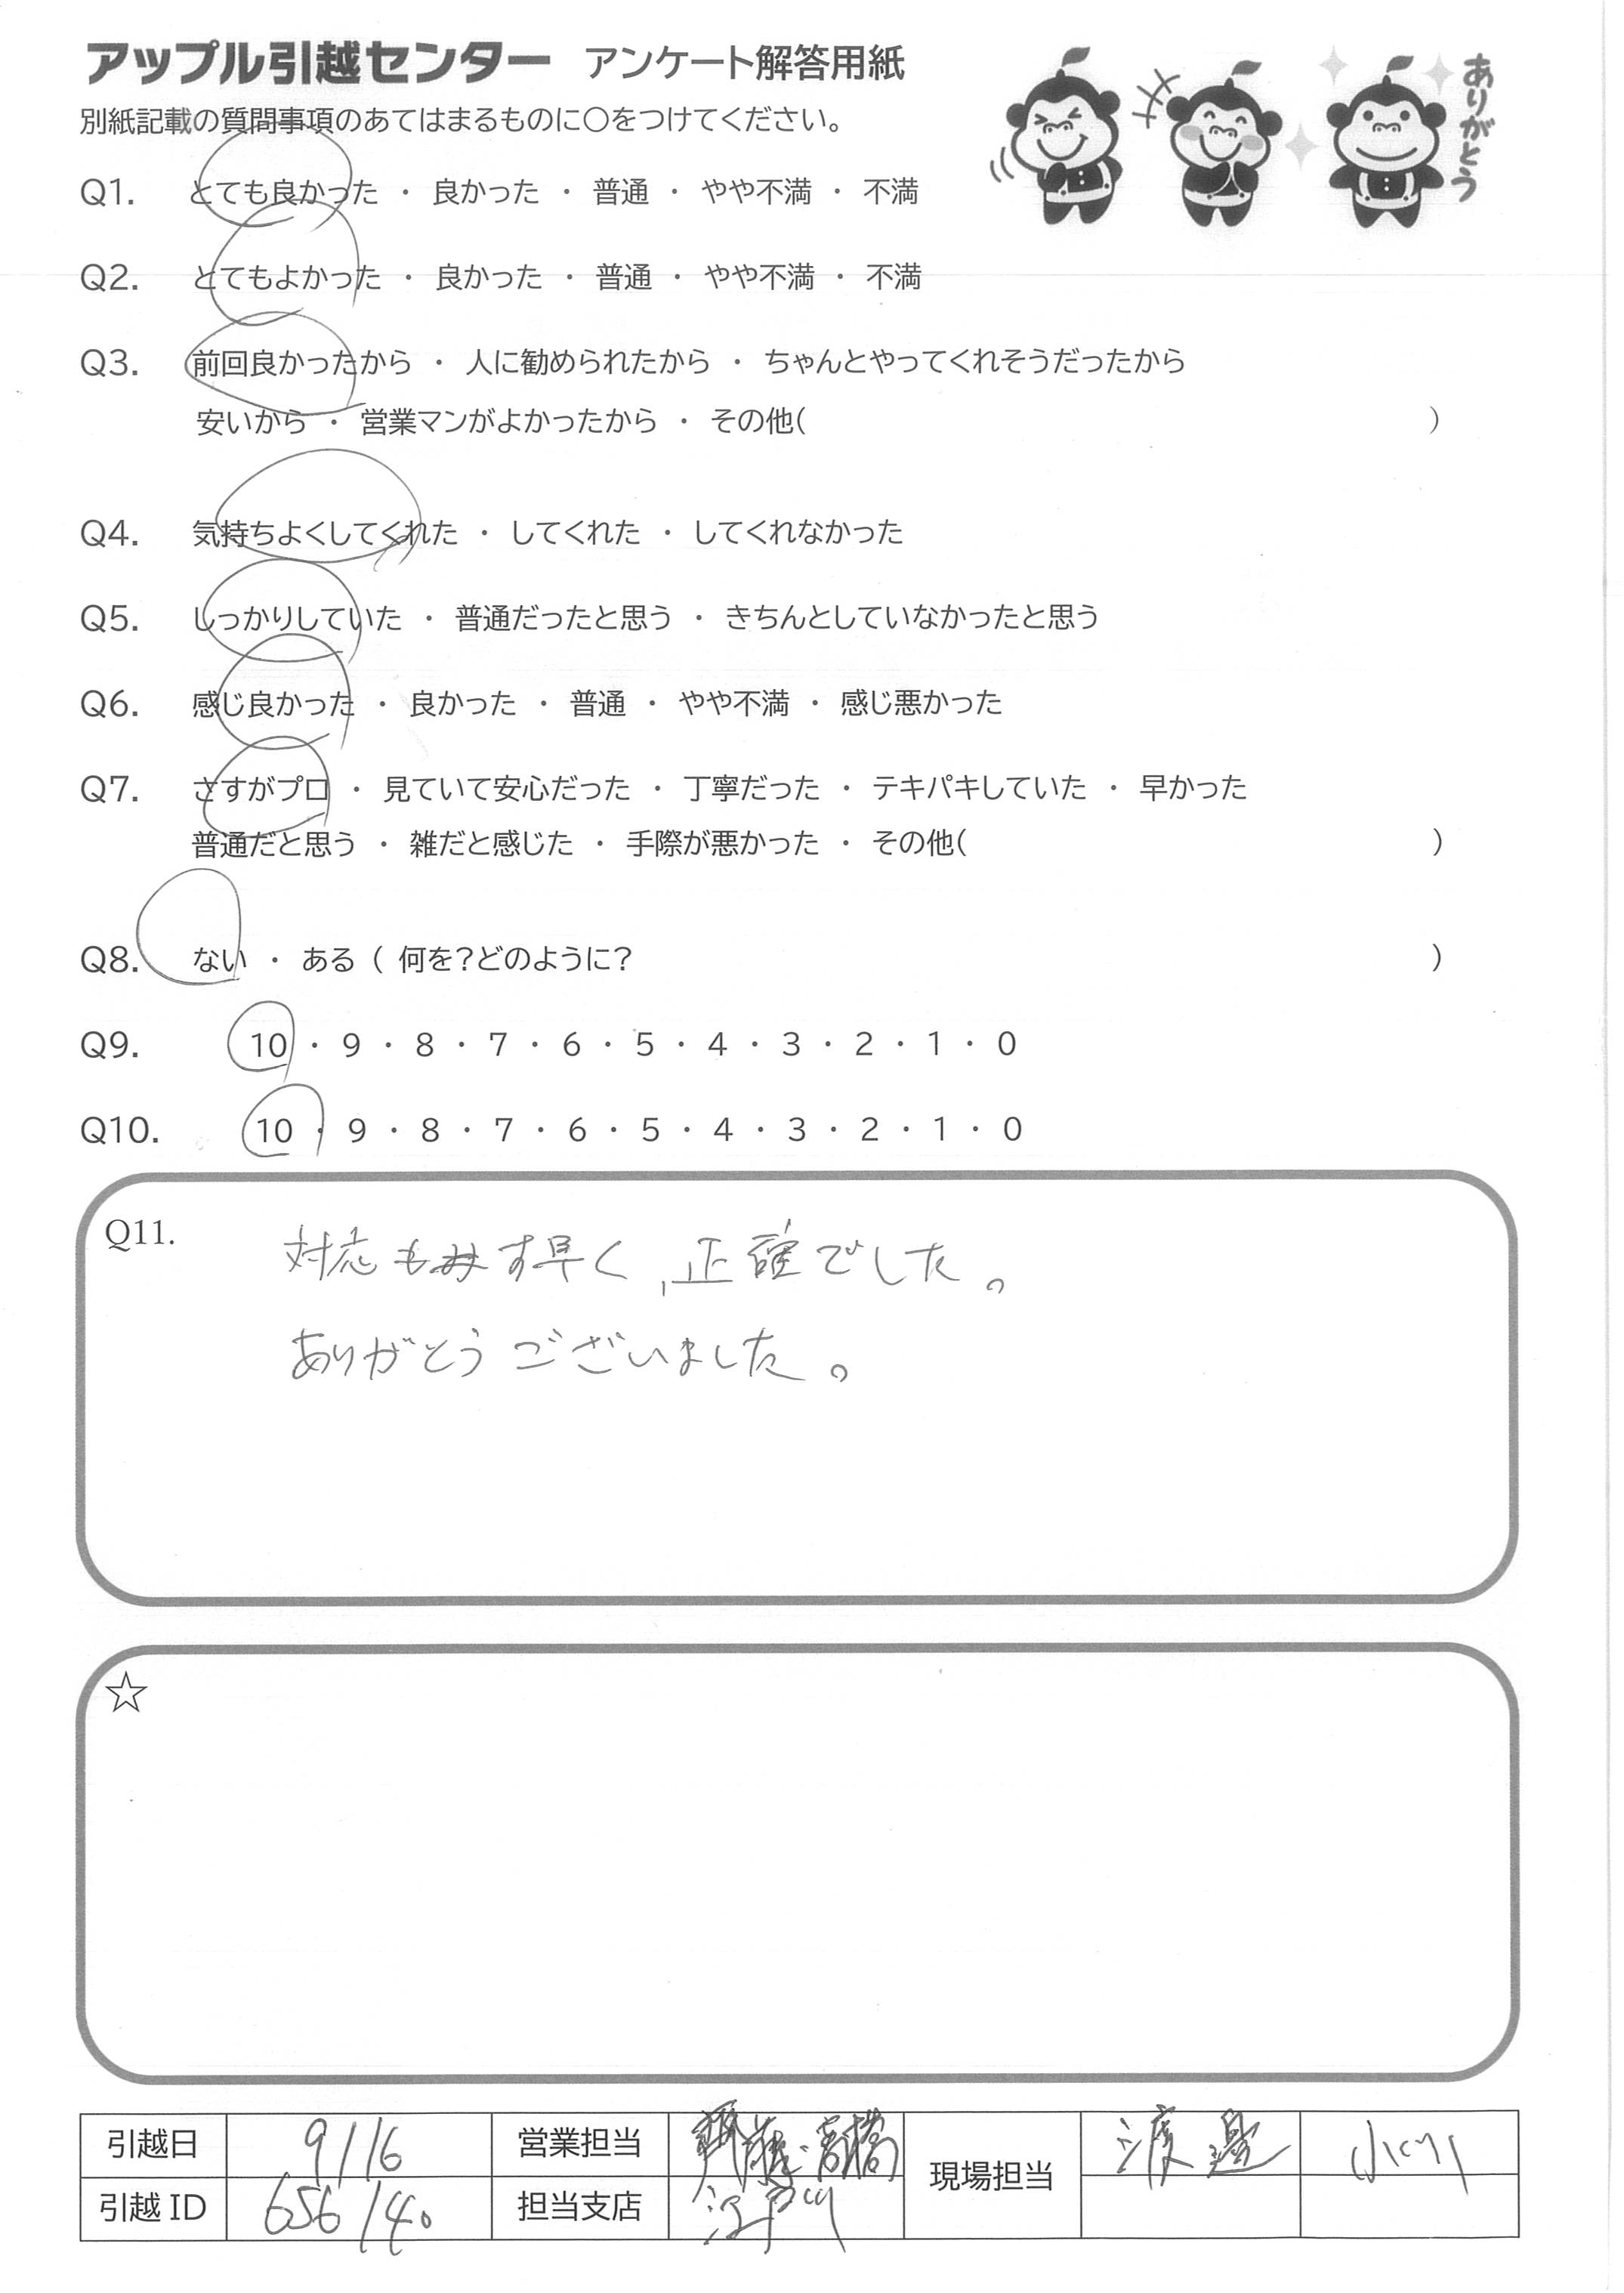 アップル引越センター アンケート解答用紙
別紙記載の質問事項のあてはまるものに〇をつけてください。
ありがとう
Q1. とても良かった ・ 良かった ・ 普通 ・ やや不満 ・ 不満
Q2. とてもよかった ・ 良かった ・ 普通 ・ やや不満 ・ 不満
Q3. 前回良かったから ・ 人に勧められたから ・ ちゃんとやってくれそうだったから
安いから ・ 営業マンがよかったから ・ その他( )
Q4. 気持ちよくしてくれた ・ してくれた ・ してくれなかった
Q5. しっかりしていた ・ 普通だったと思う ・ きちんとしていなかったと思う
Q6. 感じ良かった ・ 良かった ・ 普通 ・ やや不満 ・ 感じ悪かった
Q7. さすがプロ ・ 見ていて安心だった ・ 丁寧だった ・ テキパキしていた ・ 早かった
普通だと思う ・ 雑だと感じた ・ 手際が悪かった ・ その他( )
Q8. ない ・ ある ( 何を?どのように? )
Q9. 10 ・ 9 ・ 8 ・ 7 ・ 6 ・ 5 ・ 4 ・ 3 ・ 2 ・ 1 ・ 0
Q10. 10 ・ 9 ・ 8 ・ 7 ・ 6 ・ 5 ・ 4 ・ 3 ・ 2 ・ 1 ・ 0
Q11. 対応もす早く、正確でした。
ありがとうございました。
☆
引越日 9/16 営業担当 高橋 現場担当 渡邊 小川
引越 ID 656140 担当支店 江戸川